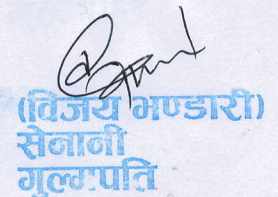 (विजय भण्डारी)
सेनानी
गुल्मपति